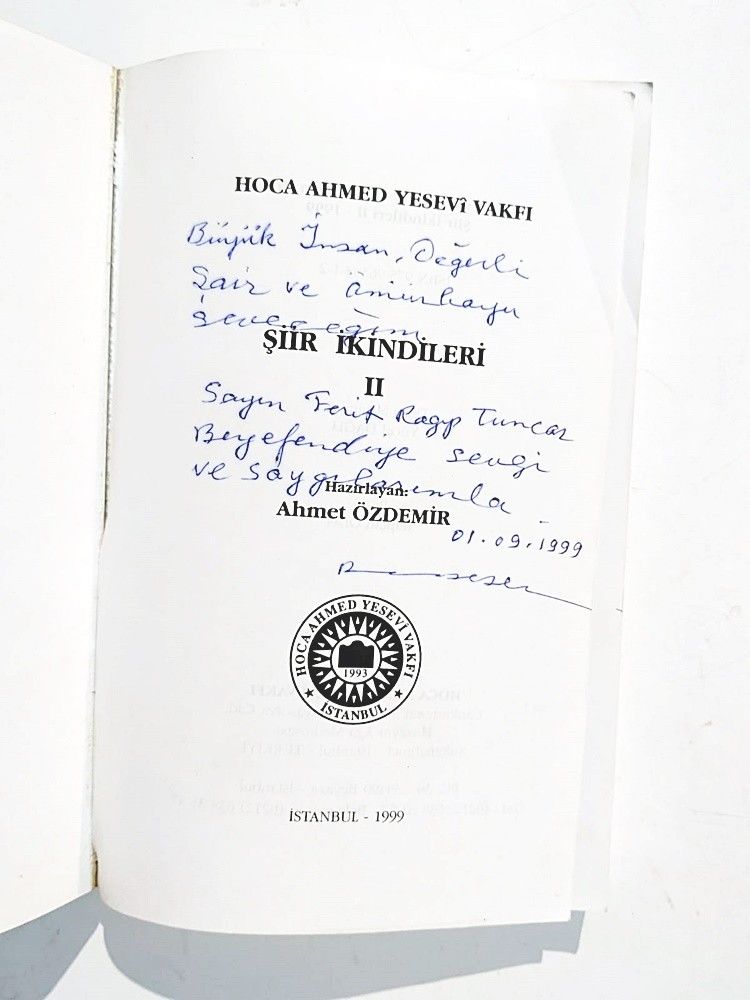 HOCA AHMED YESEVî VAKFI
Büyük İnsan, Değerli
Şair ve ömür boyu
seveceğim
ŞİİR İKİNDİLERİ
II
Sayın Ferit Ragıp Tuncor
Beyefendiye sevgi
ve saygılarımla
Hazırlayan:
Ahmet ÖZDEMİR
01.09.1999
HOCA AHMED YESEVİ VAKFI
1993
★ İSTANBUL ★
İSTANBUL - 1999